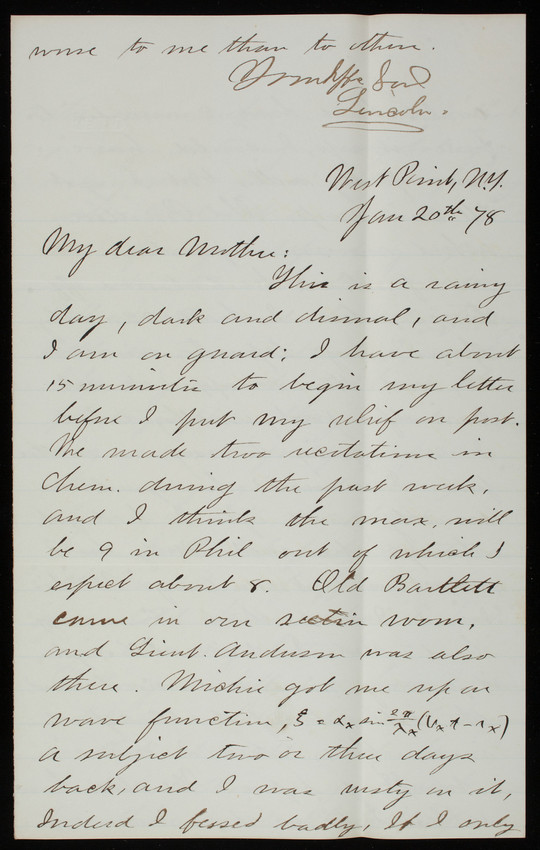 worse to me than to others.
Your Affc Son
Lincoln.
West Point, N.Y.
Jan 20th 78
My dear Mother:
This is a rainy
day, dark and dismal, and
I am on guard; I have about
15 minutes to begin my letter
before I put my relief on post.
We made two recitations in
Chem. during the past week,
and I think the max. will
be 9 in Phil out of which I
expect about 8. Old Bartlett
came in our section room,
and Lieut. Anderson was also
there. Michie got me up on
wave function, ξ = αx sin 2π/λx (Vxt - rx)
a subject two or three days
back, and I was rusty on it,
Indeed I fessed badly, If I only